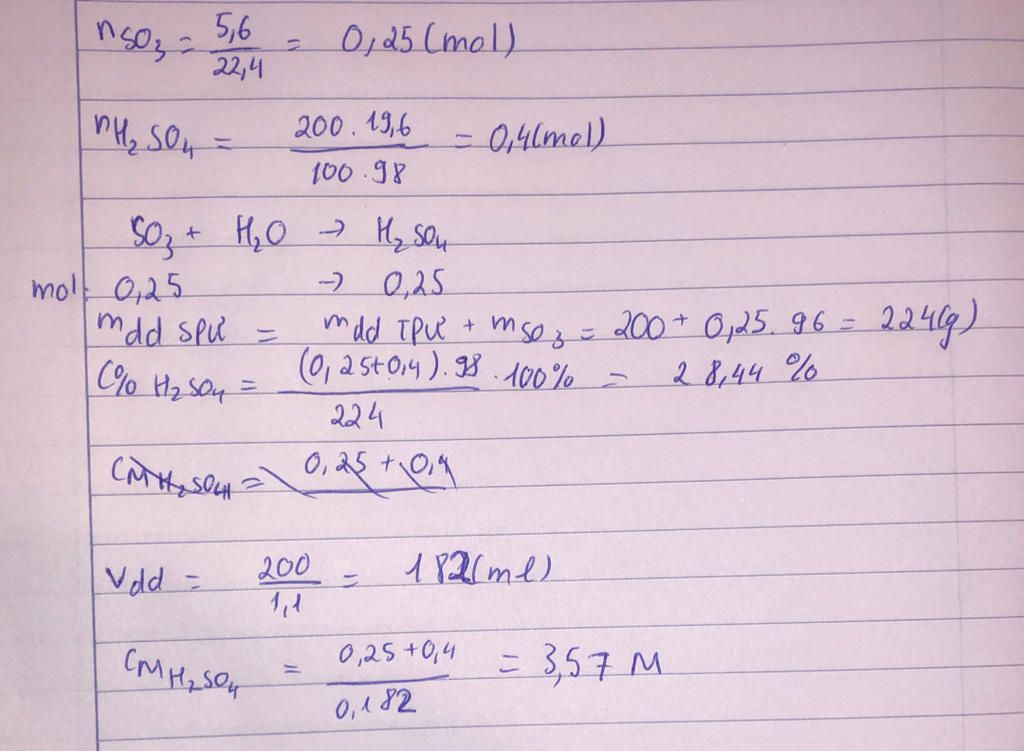 nSO₃ = 5,6/22,4 = 0,25 (mol)
nH₂SO₄ = 200 . 19,6/100 . 98 = 0,4(mol)
SO₃ + H₂O → H₂SO₄
mol: 0,25 → 0,25
mdd SPƯ = mdd TPƯ + mSO₃ = 200 + 0,25. 96 = 224(g)
C% H₂SO₄ = (0,25+0,4).98/224 . 100% = 28,44 %
CMH₂SO₄ = 0,25 + 0,4
Vdd = 200/1,1 = 182(ml)
CMH₂SO₄ = 0,25+0,4/0,182 = 3,57 M